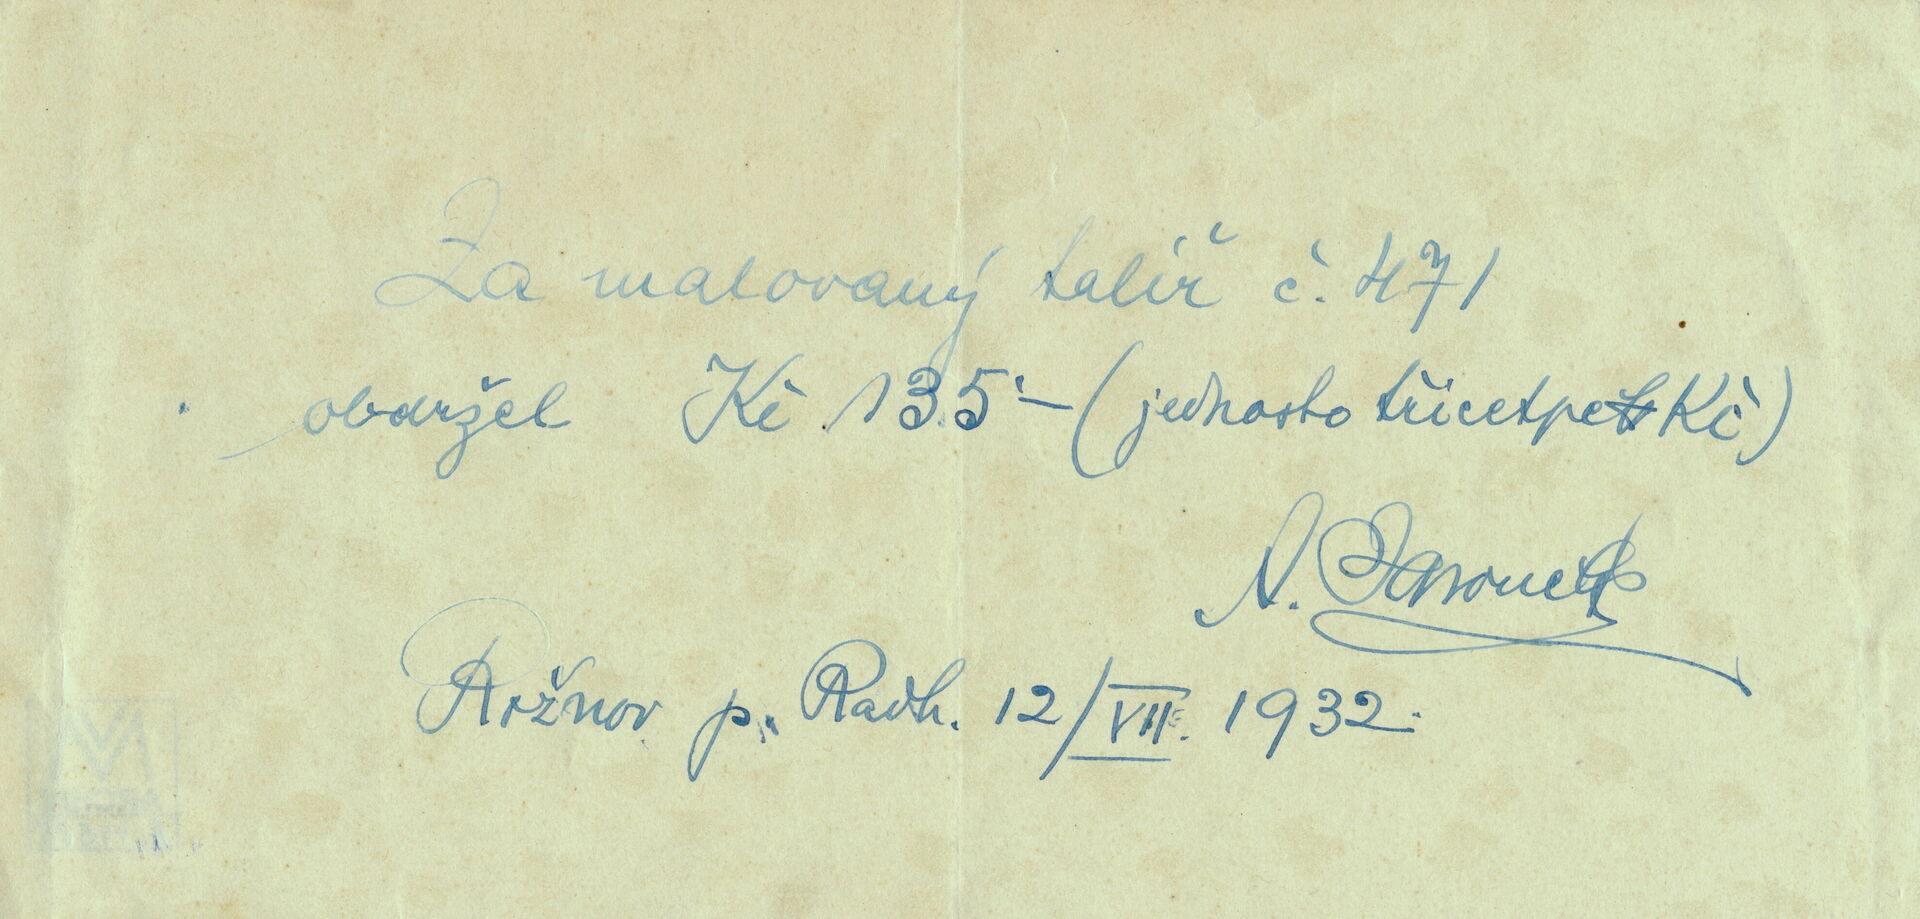 Za malovaný talíř č. 471
obdržel Kč 135·— (jednosto třicetpet Kč)
A. Jaronek
Rožnov p. Radh. 12/VII. 1932.